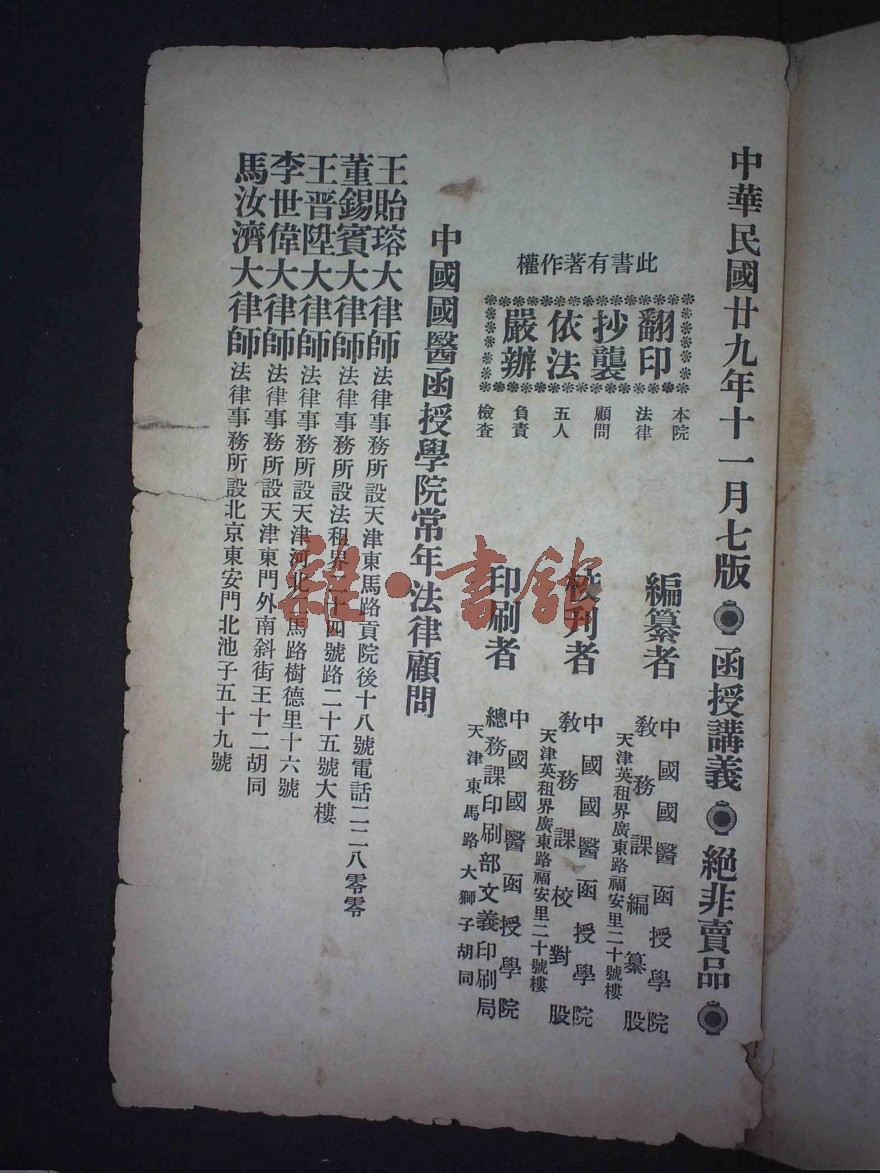 中華民國廿九年十一月七版 函授講義 絕非賣品
此書有著作權
翻印
抄襲
依法
嚴辦
本院
法律
顧問
五人
負責
檢查
編纂者
中國國醫函授學院
教務課編纂股
天津英租界廣東路福安里二十號樓
校刊者
中國國醫函授學院
教務課校對股
天津英租界廣東路福安里二十號樓
印刷者
中國國醫函授學院
總務課印刷部文義印刷局
天津東馬路大獅子胡同
中國國醫函授學院常年法律顧問
王貽瑢大律師法律事務所設天津東馬路貢院後十八號電話二二八零零
董錫賓大律師法律事務所設法租界二十四號路二十五號大樓
王晋陞大律師法律事務所設天津河北馬路樹德里十六號
李世偉大律師法律事務所設天津東門外南斜街王十二胡同
馬汝濟大律師法律事務所設北京東安門北池子五十九號
雜·書館